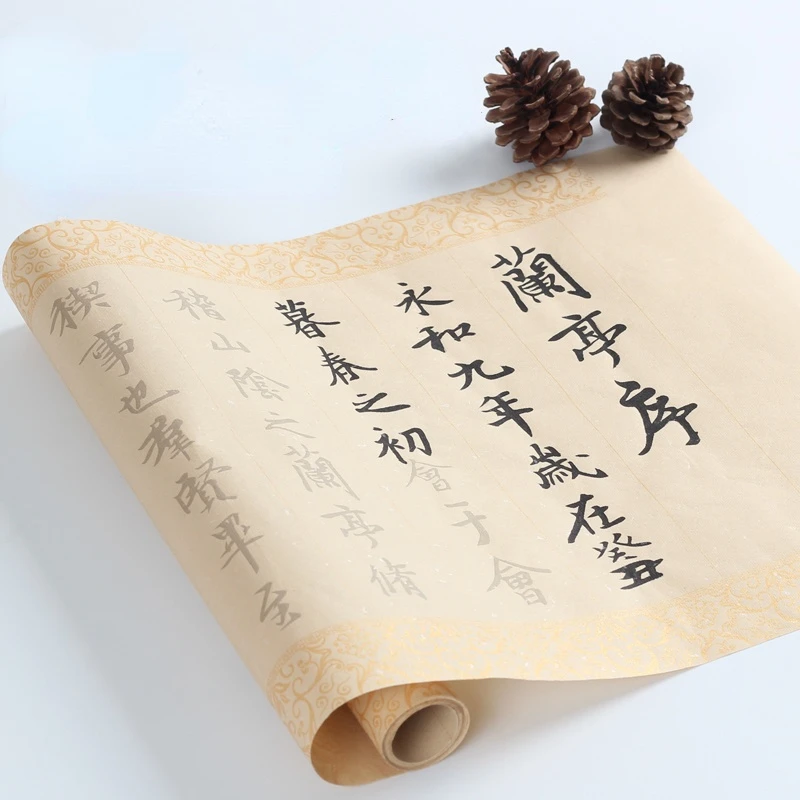 蘭亭序
永和九年歲在癸丑
暮春之初會于會
稽山陰之蘭亭脩
稧事也羣賢畢至